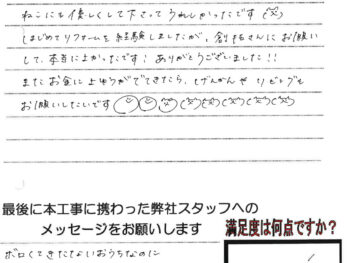 ねこにも優しくして下さってうれしかったです
はじめてリフォームを経験しましたが、創作さんにお願い
して、本当によかったです！ありがとうございました！！
またお金によゆうができてきたら、げんかんやリビングも
お願いしたいです
最後に本工事に携わった弊社スタッフへの
メッセージをお願いします
満足度は何点ですか？
ボロくてきたないおうちなのに